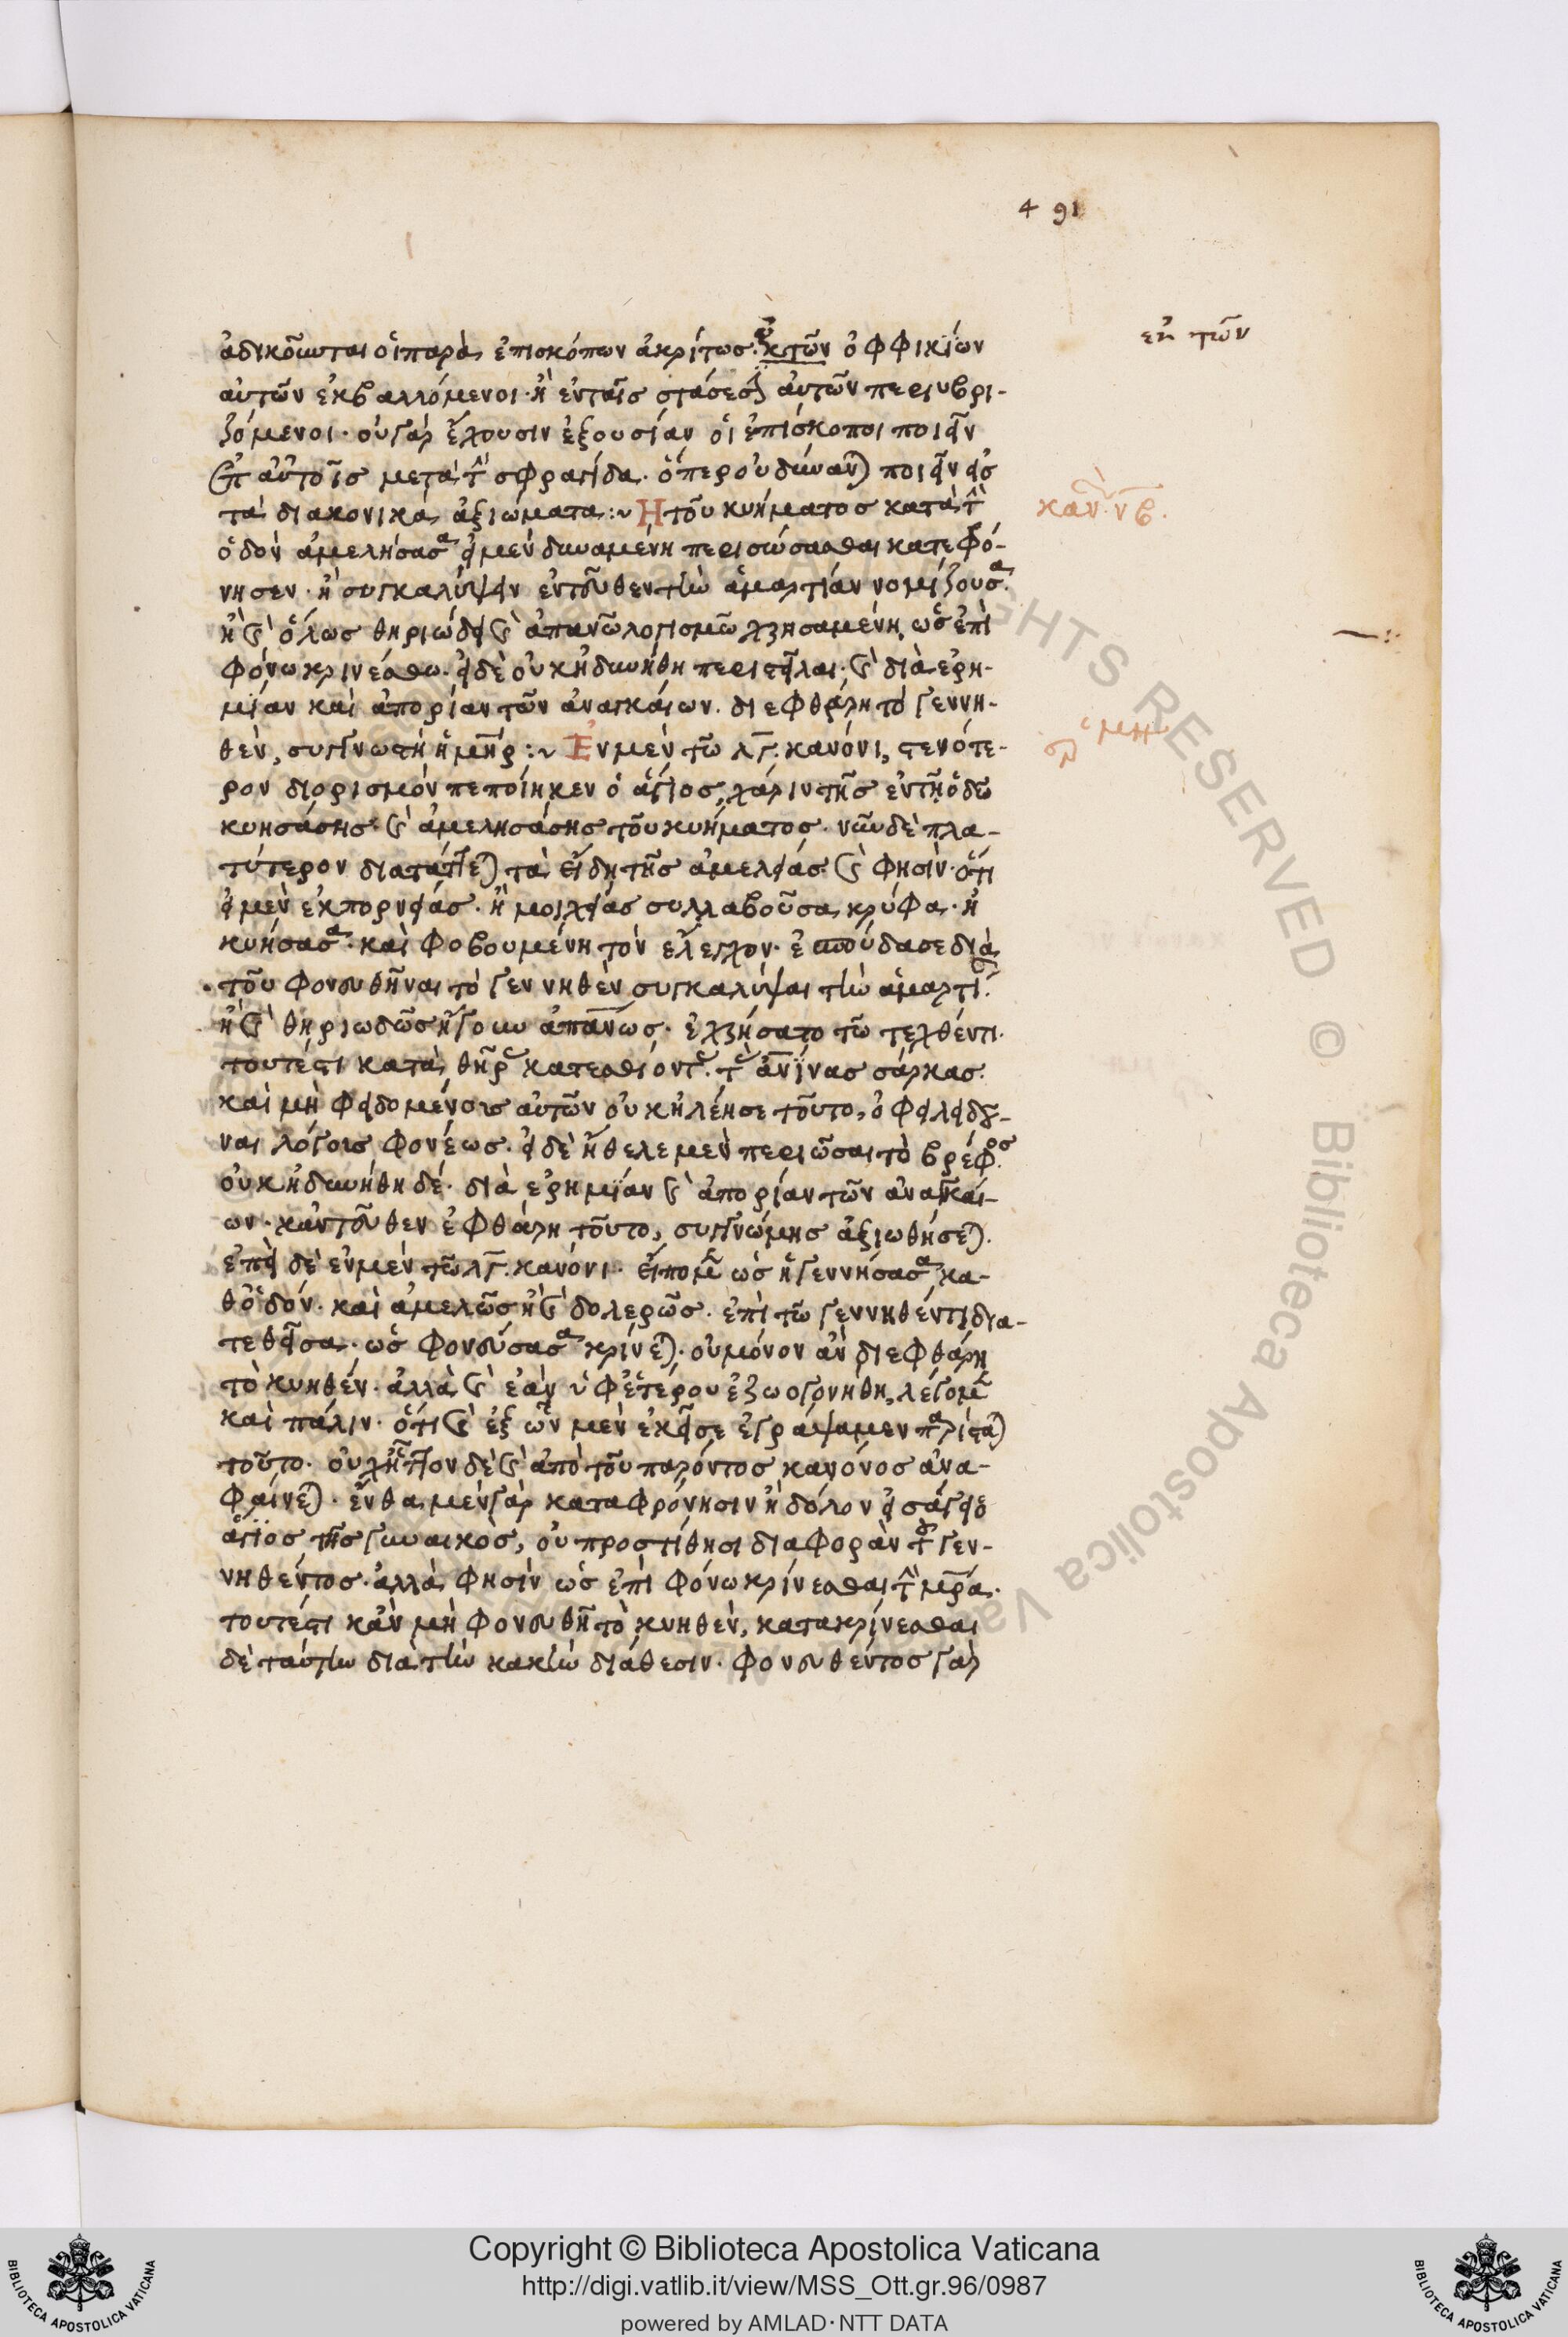 4 91
ἀδικοῦνται οἱ παρὰ ἐπισκόπων ἀκρίτως ἐκ τῶν ὀφφικίων
ἐκ τῶν
αὐτῶν ἐκβαλλόμενοι· ἢ ἐν ταῖς στάσεσιν αὐτῶν περιυβρι-
ζόμενοι· οὐ γὰρ ἔχουσιν ἐξουσίαν οἱ ἐπίσκοποι ποιεῖν
ἐπ αὐτοῖς μετὰ τὴν σφραγίδα· ὅπερ οὐ δύνανται ποιεῖν εἰς
τὰ διακονικὰ ἀξιώματα:~ Ἡ τοῦ κυήματος κατὰ τὴν
καν. νβ.
ὁδὸν ἀμελήσασα εἰ μὲν δυναμένη περισώσασθαι κατεφρό-
νησεν· ἢ συγκαλύψειν ἐντεῦθεν τὴν ἁμαρτίαν νομίζουσα·
ἢ καὶ ὅλως θηριώδει καὶ ἀπανῶ λογισμῶ χρησαμένη, ὡς ἐπὶ
φόνω κρινέσθω· εἰ δὲ οὐκ ἠδυνήθη περιστεῖλαι· καὶ διὰ ἐρη-
μίαν καὶ ἀπορίαν τῶν ἀναγκαίων διεφθάρη τὸ γεννη-
θὲν, συγγνωστὴ ἡ μηρ:~ Ἐν μὲν τῶ λγ. κανόνι, στενότε-
ρον διορισμὸν πεποίηκεν ὁ ἅγιος, χάριν τῆς ἐν τῆ ὁδῶ
κυησάσης· καὶ ἀμελησάσης τοῦ κυήματος· νῦν δὲ πλα-
τύτερον διατάττεται τὰ εἴδη τῆς ἀμελείας· καὶ φησὶν· ὅτι
εἰ μὲν ἐκ πορνείας· ἢ μοιχείας συλλαβοῦσα κρύφα· ἢ
κυήσασα· καὶ φοβουμένη τὸν ἔλεγχον· ἐσπούδασε διὰ
τοῦ φονευθῆναι τὸ γεννηθὲν συγκαλύψαι τὴν ἁμαρτίαν·
ἢ καὶ θηριωδῶς ἤγουν ἀπανως· ἐχρήσατο τῶ τεχθέντι·
τουτέστι κατὰ θῆρας κατεσθίοντας τὰς ἀνίνας σάρκας·
καὶ μὴ φειδομένους αὐτῶν οὐκ ἠλέησε τοῦτο, ὀφείλει δοῦ-
ναι λόγους φονέως· εἰ δὲ ἤθελε μὲν περισῶσαι τὸ βρέφος
οὐκ ἠδυνήθη δέ· διὰ ἐρημίαν καὶ ἀπορίαν τῶν ἀναγκαί-
ων· κἀντεῦθεν ἐφθάρη τοῦτο, συγγνώμης ἀξιωθήσεται·
ἐπεὶ δὲ ἐν μὲν τῶ λγ. κανόνι· εἴπομεν ὡς ἡ γεννήσασα κα-
θ ὁδόν· καὶ ἀμελῶς ἢ καὶ δολερῶς· ἐπὶ τῶ γεννηθέντι δια-
τεθεῖσα· ὡς φονεύσασα κρίνεται· οὐ μόνον ἂν διεφθάρη
τὸ κυηθέν· ἀλλὰ καὶ ἐὰν ὑφ ἑτέρου ἐζωογονήθη, λέγομεν
καὶ πάλιν· ὅτι καὶ ἐξ ὧν μὲν ἐκεῖσε ἐγράψαμεν παρίσταται
τοῦτο· οὐχ ἧττον δὲ καὶ ἀπὸ τοῦ παρόντος κανόνος ἀνα-
φαίνεται· ἔνθα μὲν γὰρ καταφρόνησιν ἢ δόλον εἰσάγει ὁ
ἅγιος τῆς γυναικὸς, οὐ προστίθησι διαφορὰν τοῦ γεν-
νηθέντος· ἀλλὰ φησὶν ὡς ἐπὶ φόνω κρίνεσθαι τὴν μρα·
τουτέστι κἂν μὴ φονευθῆ τὸ κυηθὲν, κατακρίνεσθαι
δὲ ταύτην διὰ τὴν κακὴν διάθεσιν· φονευθέντος γὰρ
Copyright © Biblioteca Apostolica Vaticana
http://digi.vatlib.it/view/MSS_Ott.gr.96/0987
powered by AMLAD·NTT DATA
BIBLIOTECA APOSTOLICA VATICANA
BIBLIOTECA APOSTOLICA VATICANA